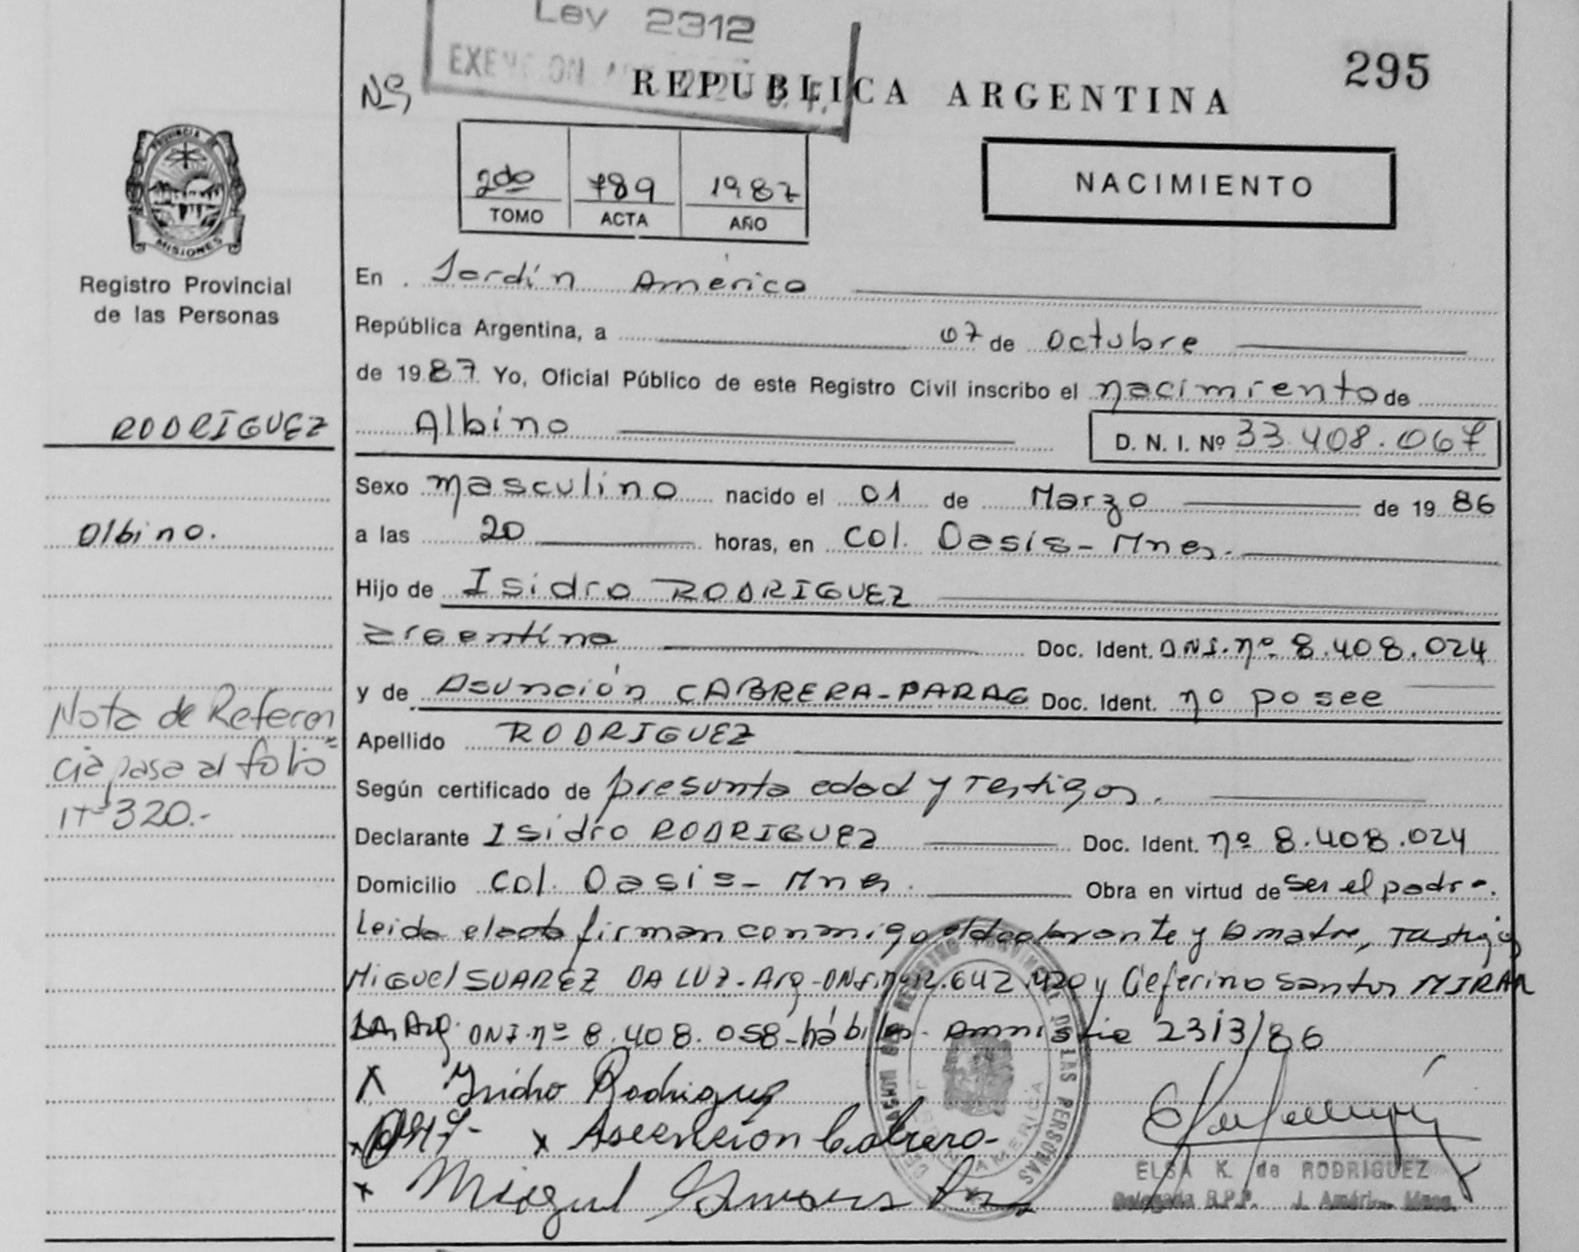 Ley 2312
295
Nº
REPUBLICA ARGENTINA
2do 789 1987
TOMO ACTA AÑO
NACIMIENTO
PROVINCIA DE
MISIONES
Registro Provincial
de las Personas
En Jardín América
República Argentina, a 07 de octubre
de 1987 Yo, Oficial Público de este Registro Civil inscribo el nacimiento de
RODRIGUEZ
Albino D. N. I. Nº 33.408.067
Sexo masculino nacido el 01 de Marzo de 1986
Albino.
a las 20 horas, en Col. Oasis - Mnes.
Hijo de Isidro RODRIGUEZ
argentino Doc. Ident. DNI. nº 8.408.024
y de Asunción CABRERA-PARAG Doc. Ident. no posee
Nota de Referen
cia pasa al folio
nº 320.-
Apellido RODRIGUEZ
Según certificado de presunta edad y testigos.
Declarante Isidro RODRIGUEZ Doc. Ident. nº 8.408.024
Domicilio Col. Oasis - Mnes. Obra en virtud de ser el padre.
Leida el acta firman conmigo el declarante y la madre, Testigos
Miguel SUAREZ DA LUZ - Arg - DNI. nº 12.642.420 y Ceferino Santos MIRAN
DA, Arg. DNI. nº 8.408.058 - hábiles - amnistia 23/3/86
X Isidro Rodriguez
x Ascencion Cabrera
x Miguel
ELSA K. de RODRIGUEZ
Delegada R.P.P. J. Améri. Mnes.